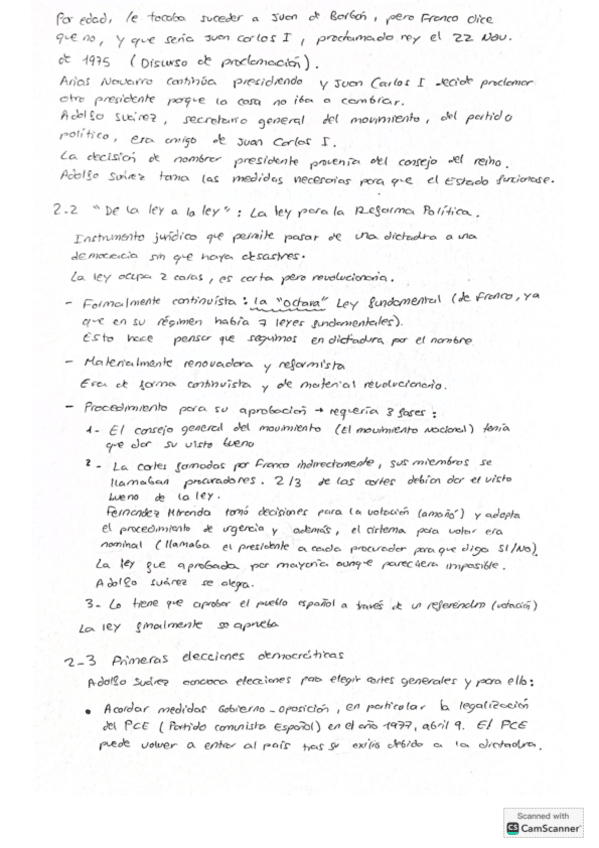 Por edad, le tocaba suceder a Juan de Borbón, pero Franco dice
que no, y que sería Juan Carlos I, proclamado rey el 22 Nov.
de 1975 (Discurso de proclamación).
Arias Navarro continúa presidiendo y Juan Carlos I decide proclamar
otro presidente porque la cosa no iba a cambiar.
Adolfo Suárez, secretario general del movimiento, del partido
político, era amigo de Juan Carlos I.
La decisión de nombrar presidente provenía del consejo del reino.
Adolfo Suárez toma las medidas necesarias para que el Estado funcionase.
2.2 "De la ley a la ley": La ley para la Reforma Política.
Instrumento jurídico que permite pasar de una dictadura a una
democracia sin que haya desastres.
La ley ocupa 2 caras, es corta pero revolucionaria.
- Formalmente continuista: la "octava" Ley fundamental (de Franco, ya
que en su régimen había 7 leyes fundamentales).
Esto hace pensar que seguimos en dictadura por el nombre
- Materialmente renovadora y reformista
Era de forma continuista y de material revolucionario.
- Procedimiento para su aprobación → requería 3 fases:
1- El consejo general del movimiento (El movimiento Nacional) tenía
que dar su visto bueno
2- La cortes formadas por Franco indirectamente, sus miembros se
llamaban procuradores. 2/3 de las cortes debían dar el visto
bueno de la ley.
Fernández Miranda tomó decisiones para la votación (amañó) y adopta
el procedimiento de urgencia y además, el sistema para votar era
nominal (llamaba el presidente a cada procurador para que diga SI/NO).
La ley fue aprobada por mayoría aunque pareciera imposible.
Adolfo Suárez se alegra.
3- Lo tiene que aprobar el pueblo español a través de un referendum (votación)
La ley finalmente se aprueba
2-3 Primeras elecciones democráticas
Adolfo Suárez convoca elecciones para elegir cortes generales y para ello:
• Acordar medidas Gobierno-oposición, en particular la legalización
del PCE (Partido comunista Español) en el año 1977, abril 9. El PCE
puede volver a entrar al país tras su exilio debido a la dictadura.
Scanned with
CS CamScanner